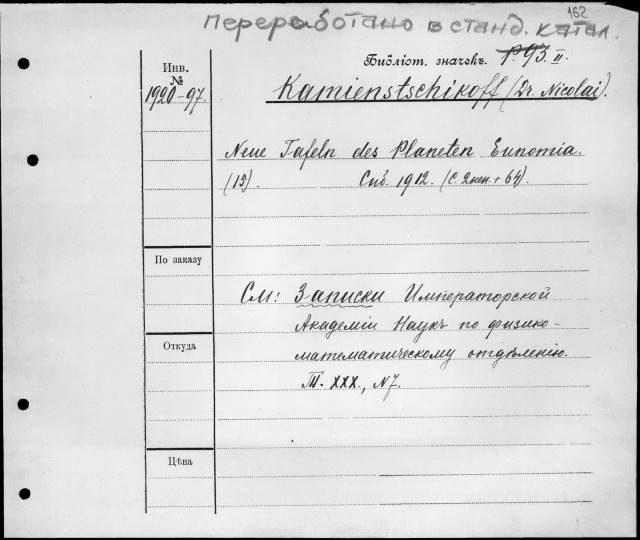 162
переработано в станд. катал.
Библіот. значекъ. P.93. II.
Инв.
№
1920-97.
Kamienstschikoff (Dr. Nicolai).
Neue Tafeln des Planeten Eunomia.
(15). Спб. 1912. (С. 2нен + 64).
По заказу
См: Записки Императорской
Академіи Наукъ по физико-
Откуда
математическому отдѣленію.
Т. XXX, N7.
Цѣна